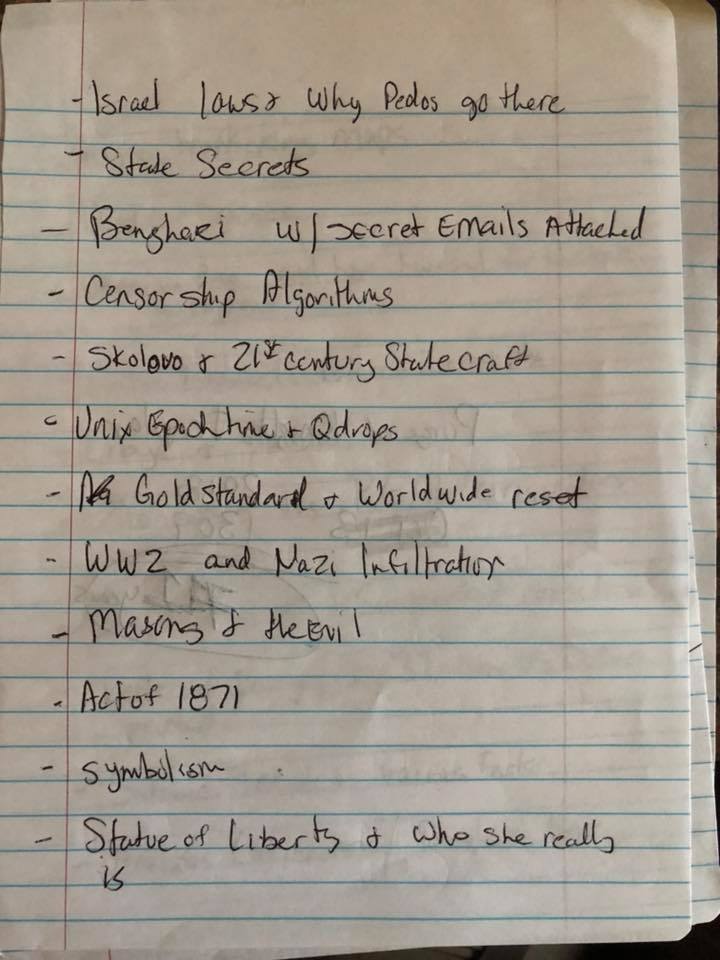 - Israel laws & Why Pedos go there
- State Secrets
- Benghazi w/ secret Emails Attached
- Censorship Algorithms
- Skolovo & 21st century Statecraft
- Unix Epoch time & Qdrops
- Gold standard & Worldwide reset
- WW2 and Nazi Infiltration
- Masons & the Evil
- Act of 1871
- symbolism
- Statue of Liberty & who she really
is